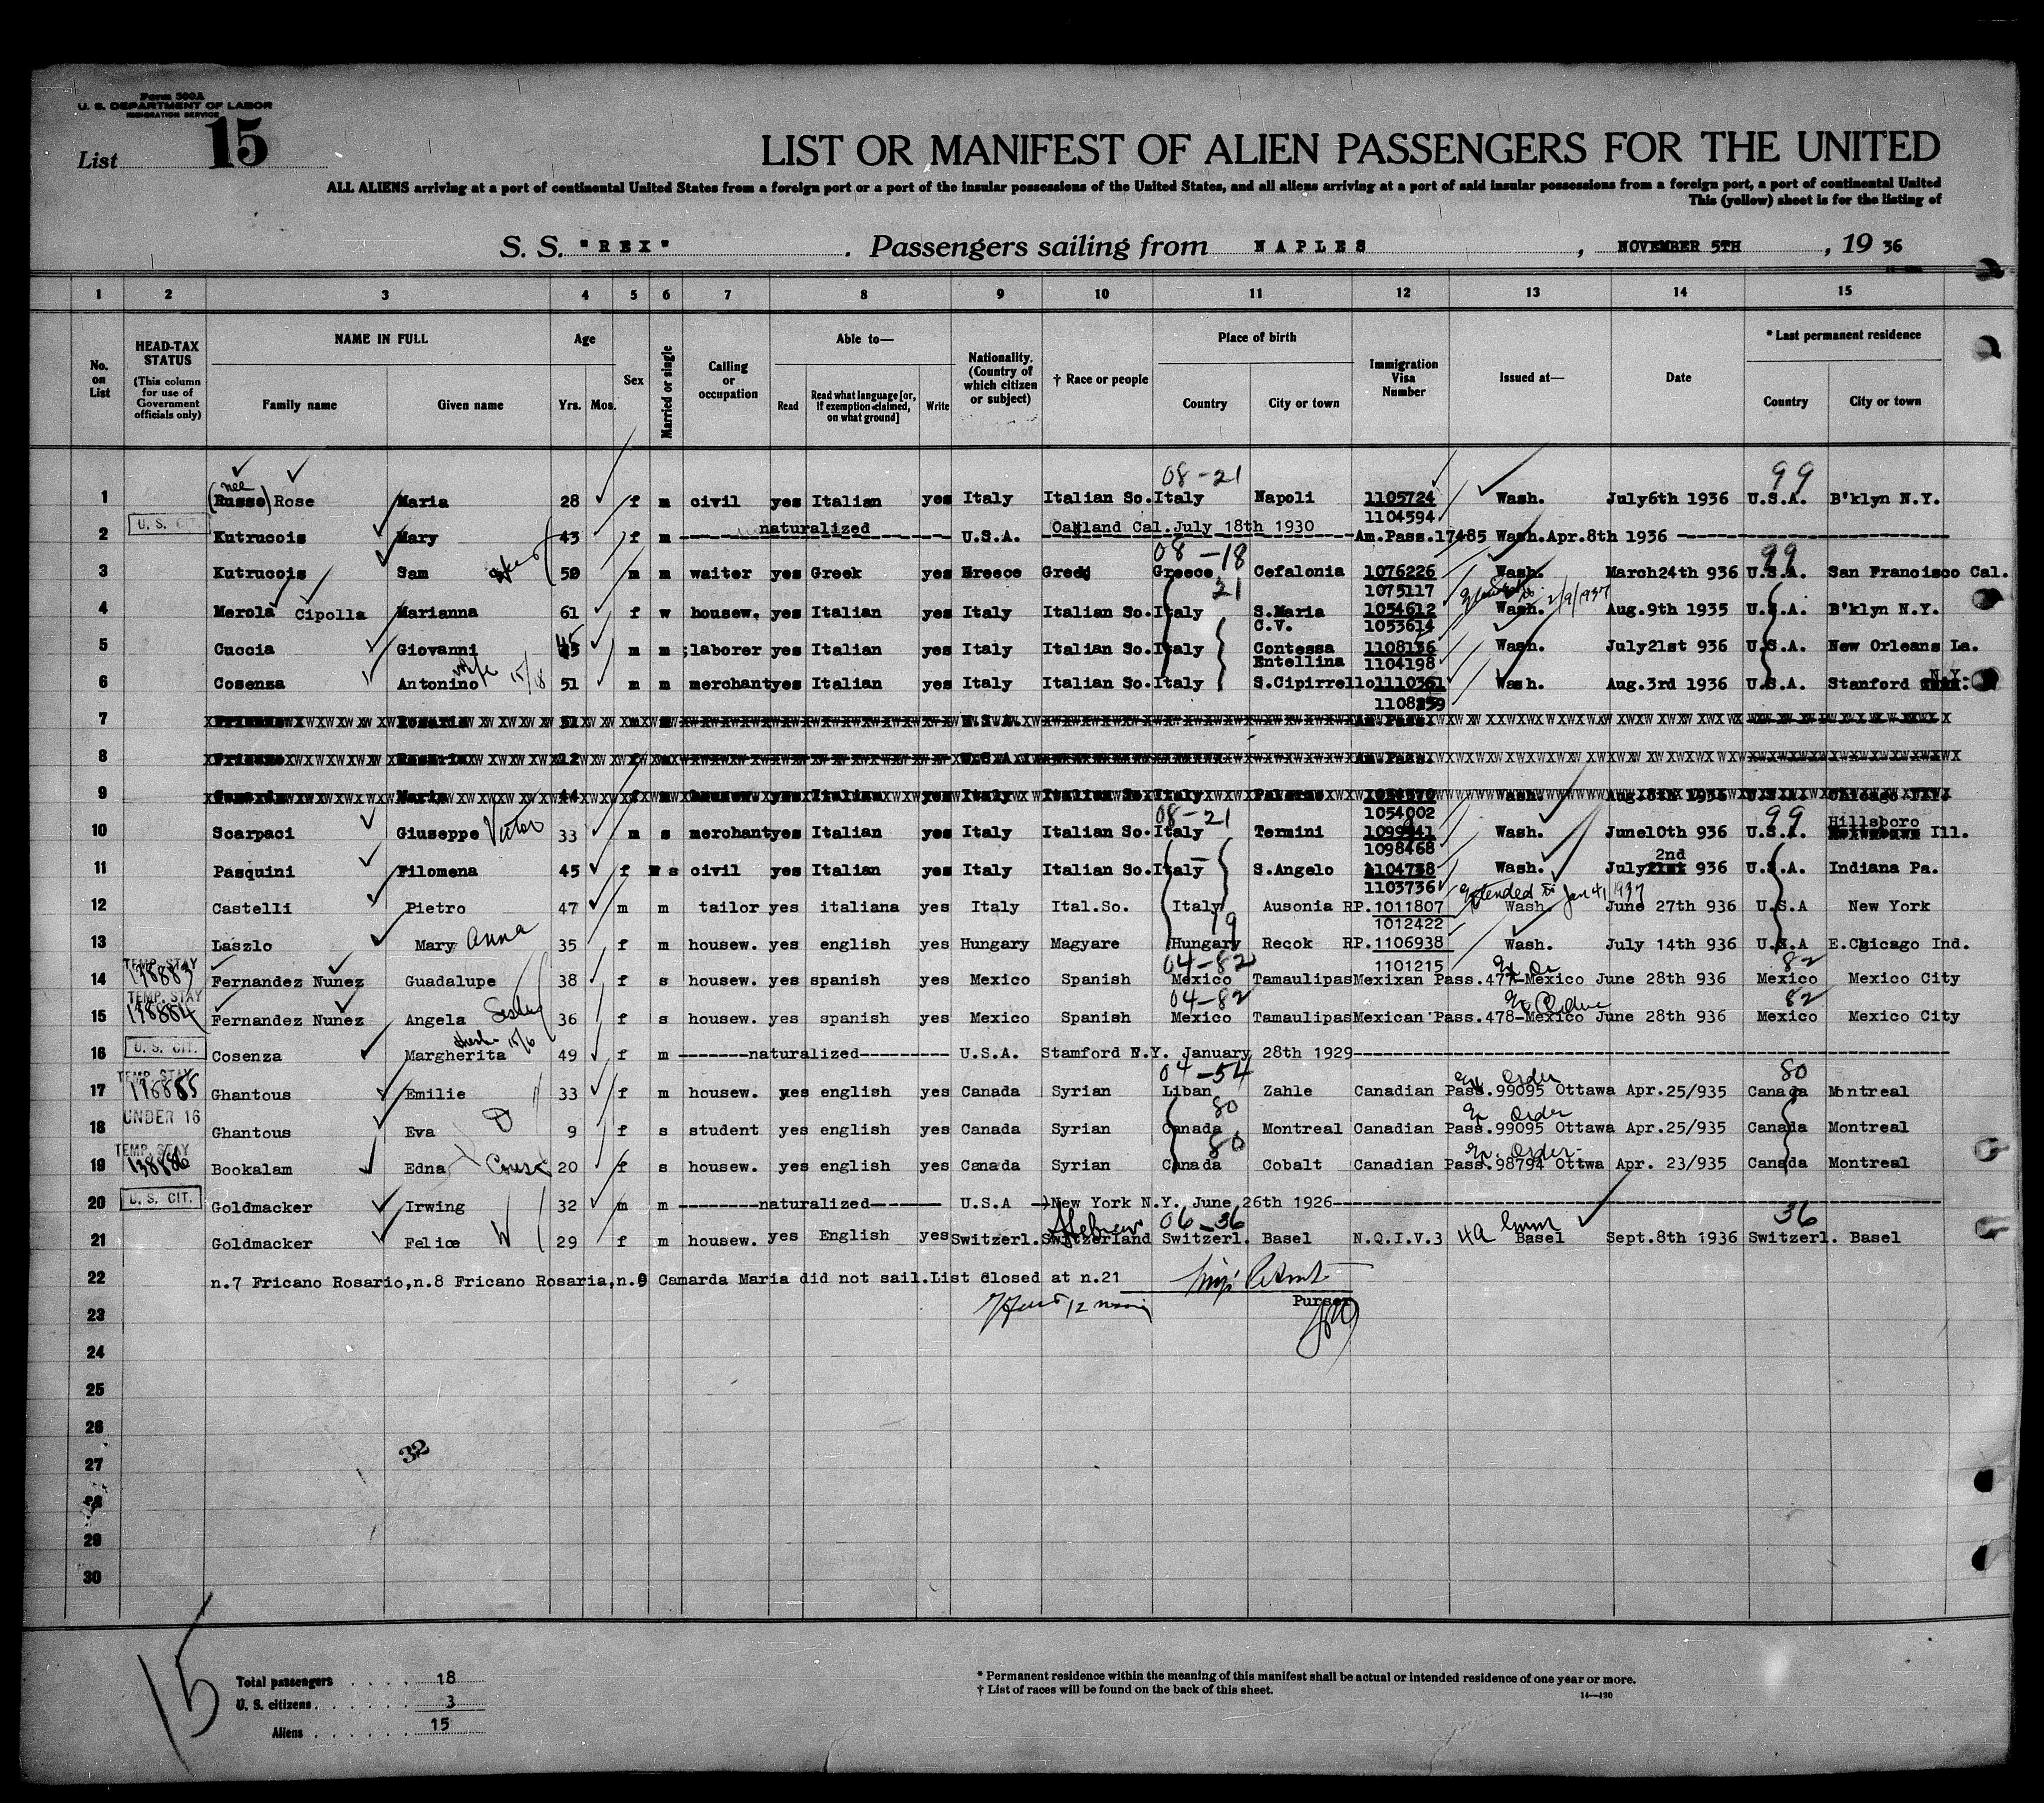 Form 500A
U. S. DEPARTMENT OF LABOR
IMMIGRATION SERVICE
List 15
LIST OR MANIFEST OF ALIEN PASSENGERS FOR THE UNITED
ALL ALIENS arriving at a port of continental United States from a foreign port or a port of the insular possessions of the United States, and all aliens arriving at a port of said insular possessions from a foreign port, a port of continental United
This (yellow) sheet is for the listing of
S. S. "REX" . Passengers sailing from NAPLES , NOVEMBER 5TH , 19 36
1 2 3 4 5 6 7 8 9 10 11 12 13 14 15
No. on List
HEAD-TAX STATUS (This column for use of Government officials only)
NAME IN FULL Family name Given name
Age Yrs. Mos.
Sex
Married or single
Calling or occupation
Able to— Read Read what language [or, if exemption claimed, on what ground] Write
Nationality. (Country of which citizen or subject)
† Race or people
Place of birth Country City or town
Immigration Visa Number
Issued at—
Date
* Last permanent residence Country City or town
08-21 99
1 (nee Russo) Rose Maria 28 f m civil yes Italian yes Italy Italian So. Italy Napoli 1105724 Wash. July6th 1936 U.S.A. B'klyn N.Y.
1104594
2 U. S. CIT. Kutrucois Mary 43 f m naturalized U.S.A. Oakland Cal.July 18th 1930 Am.Pass.17485 Wash.Apr.8th 1936
08-18 99
3 Kutrucois Sam 50 m m waiter yes Greek yes Greece Greek Greece Cefalonia 1076226 Wash. March24th 936 U.S.A. San Francisco Cal.
21 1075117
4 Merola Cipolla Marianna 61 f w housew. yes Italian yes Italy Italian So. Italy S.Maria C.V. 1054612 Wash. 2/9/1937 Aug.9th 1935 U.S.A. B'klyn N.Y.
1053614
5 Cuccia Giovanni 45 m m laborer yes Italian yes Italy Italian So. Italy Contessa Entellina 1108136 Wash. July21st 936 U.S.A. New Orleans La.
1104198
6 Cosenza Antonino wife 15/18 51 m m merchant yes Italian yes Italy Italian So. Italy S.Cipirrello 1110361 Wash. Aug.3rd 1936 U.S.A. Stanford N.Y.
7 Am.Pass.
8 Am.Pass.
9 Maria 44 yes Italian yes Italy Italian So. Italy Palermo 1054570 Wash.
1054002
08-21 99
10 Scarpaci Giuseppe Victor 33 m s merchant yes Italian yes Italy Italian So. Italy Termini Wash. June10th 936 U.S.A. Hillsboro Ill.
1098468
11 Pasquini Filomena 45 f s civil yes Italian yes Italy Italian So. Italy S.Angelo 1104738 Wash. July 2nd 936 U.S.A. Indiana Pa.
1103736
Extended to Jan 4/1937
12 Castelli Pietro 47 m m tailor yes italiana yes Italy Ital.So. Italy Ausonia RP.1011807 Wash. June 27th 936 U.S.A New York
19 1012422
13 Laszlo Mary Anna 35 f m housew. yes english yes Hungary Magyare Hungary Recok RP.1106938 Wash. July 14th 936 U.S.A E.Chicago Ind.
1101215
04-82 82
14 TEMP. STAY 198883 Fernandez Nunez Guadalupe 38 f s housew. yes spanish yes Mexico Spanish Mexico Tamaulipas Mexixan Pass.477-Mexico June 28th 936 Mexico Mexico City
04-82 Ex Order 82
15 TEMP. STAY 198884 Fernandez Nunez Angela Sister 36 f s housew. yes spanish yes Mexico Spanish Mexico Tamaulipas Mexican Pass.478-Mexico June 28th 936 Mexico Mexico City
16 U. S. CIT. Cosenza Margherita 15/6 49 f m naturalized U.S.A. Stamford N.Y. January 28th 1929
04-54 Ex Order 80
17 TEMP. STAY 198885 Ghantous Emilie 33 f m housew. yes english yes Canada Syrian Liban Zahle Canadian Pass.99095 Ottawa Apr.25/935 Canada Montreal
80 Ex Order
18 UNDER 16 Ghantous Eva D 9 f s student yes english yes Canada Syrian Canada Montreal Canadian Pass.99095 Ottawa Apr.25/935 Canada Montreal
80 Ex. Order
19 TEMP. STAY 198886 Bookalam Edna Cous 20 f s housew. yes english yes Canada Syrian Canada Cobalt Canadian Pass.98794 Ottwa Apr. 23/935 Canada Montreal
20 U. S. CIT. Goldmacker Irwing 32 m m naturalized U.S.A New York N.Y. June 26th 1926
Hebrew 06-36 36
21 Goldmacker Felice W 29 f m housew. yes English yes Switzerl. Switzerland Switzerl. Basel N.Q.I.V.3 4a Imm Basel Sept.8th 1936 Switzerl. Basel
22 n.7 Fricano Rosario,n.8 Fricano Rosaria,n.9 Camarda Maria did not sail.List closed at n.21
Purser
23
24
25
26
27
28
29
30
32
15
Total passengers 18
U. S. citizens 3
Aliens 15
* Permanent residence within the meaning of this manifest shall be actual or intended residence of one year or more.
† List of races will be found on the back of this sheet.
14—430